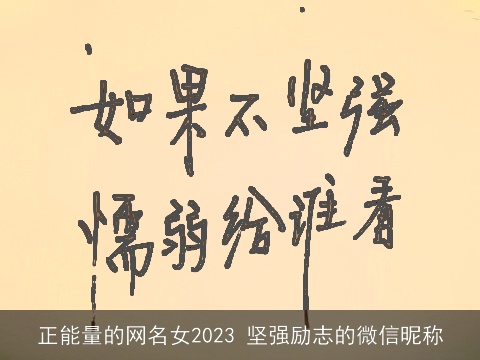 如果不坚强
懦弱给谁看
正能量的网名女2023 坚强励志的微信昵称